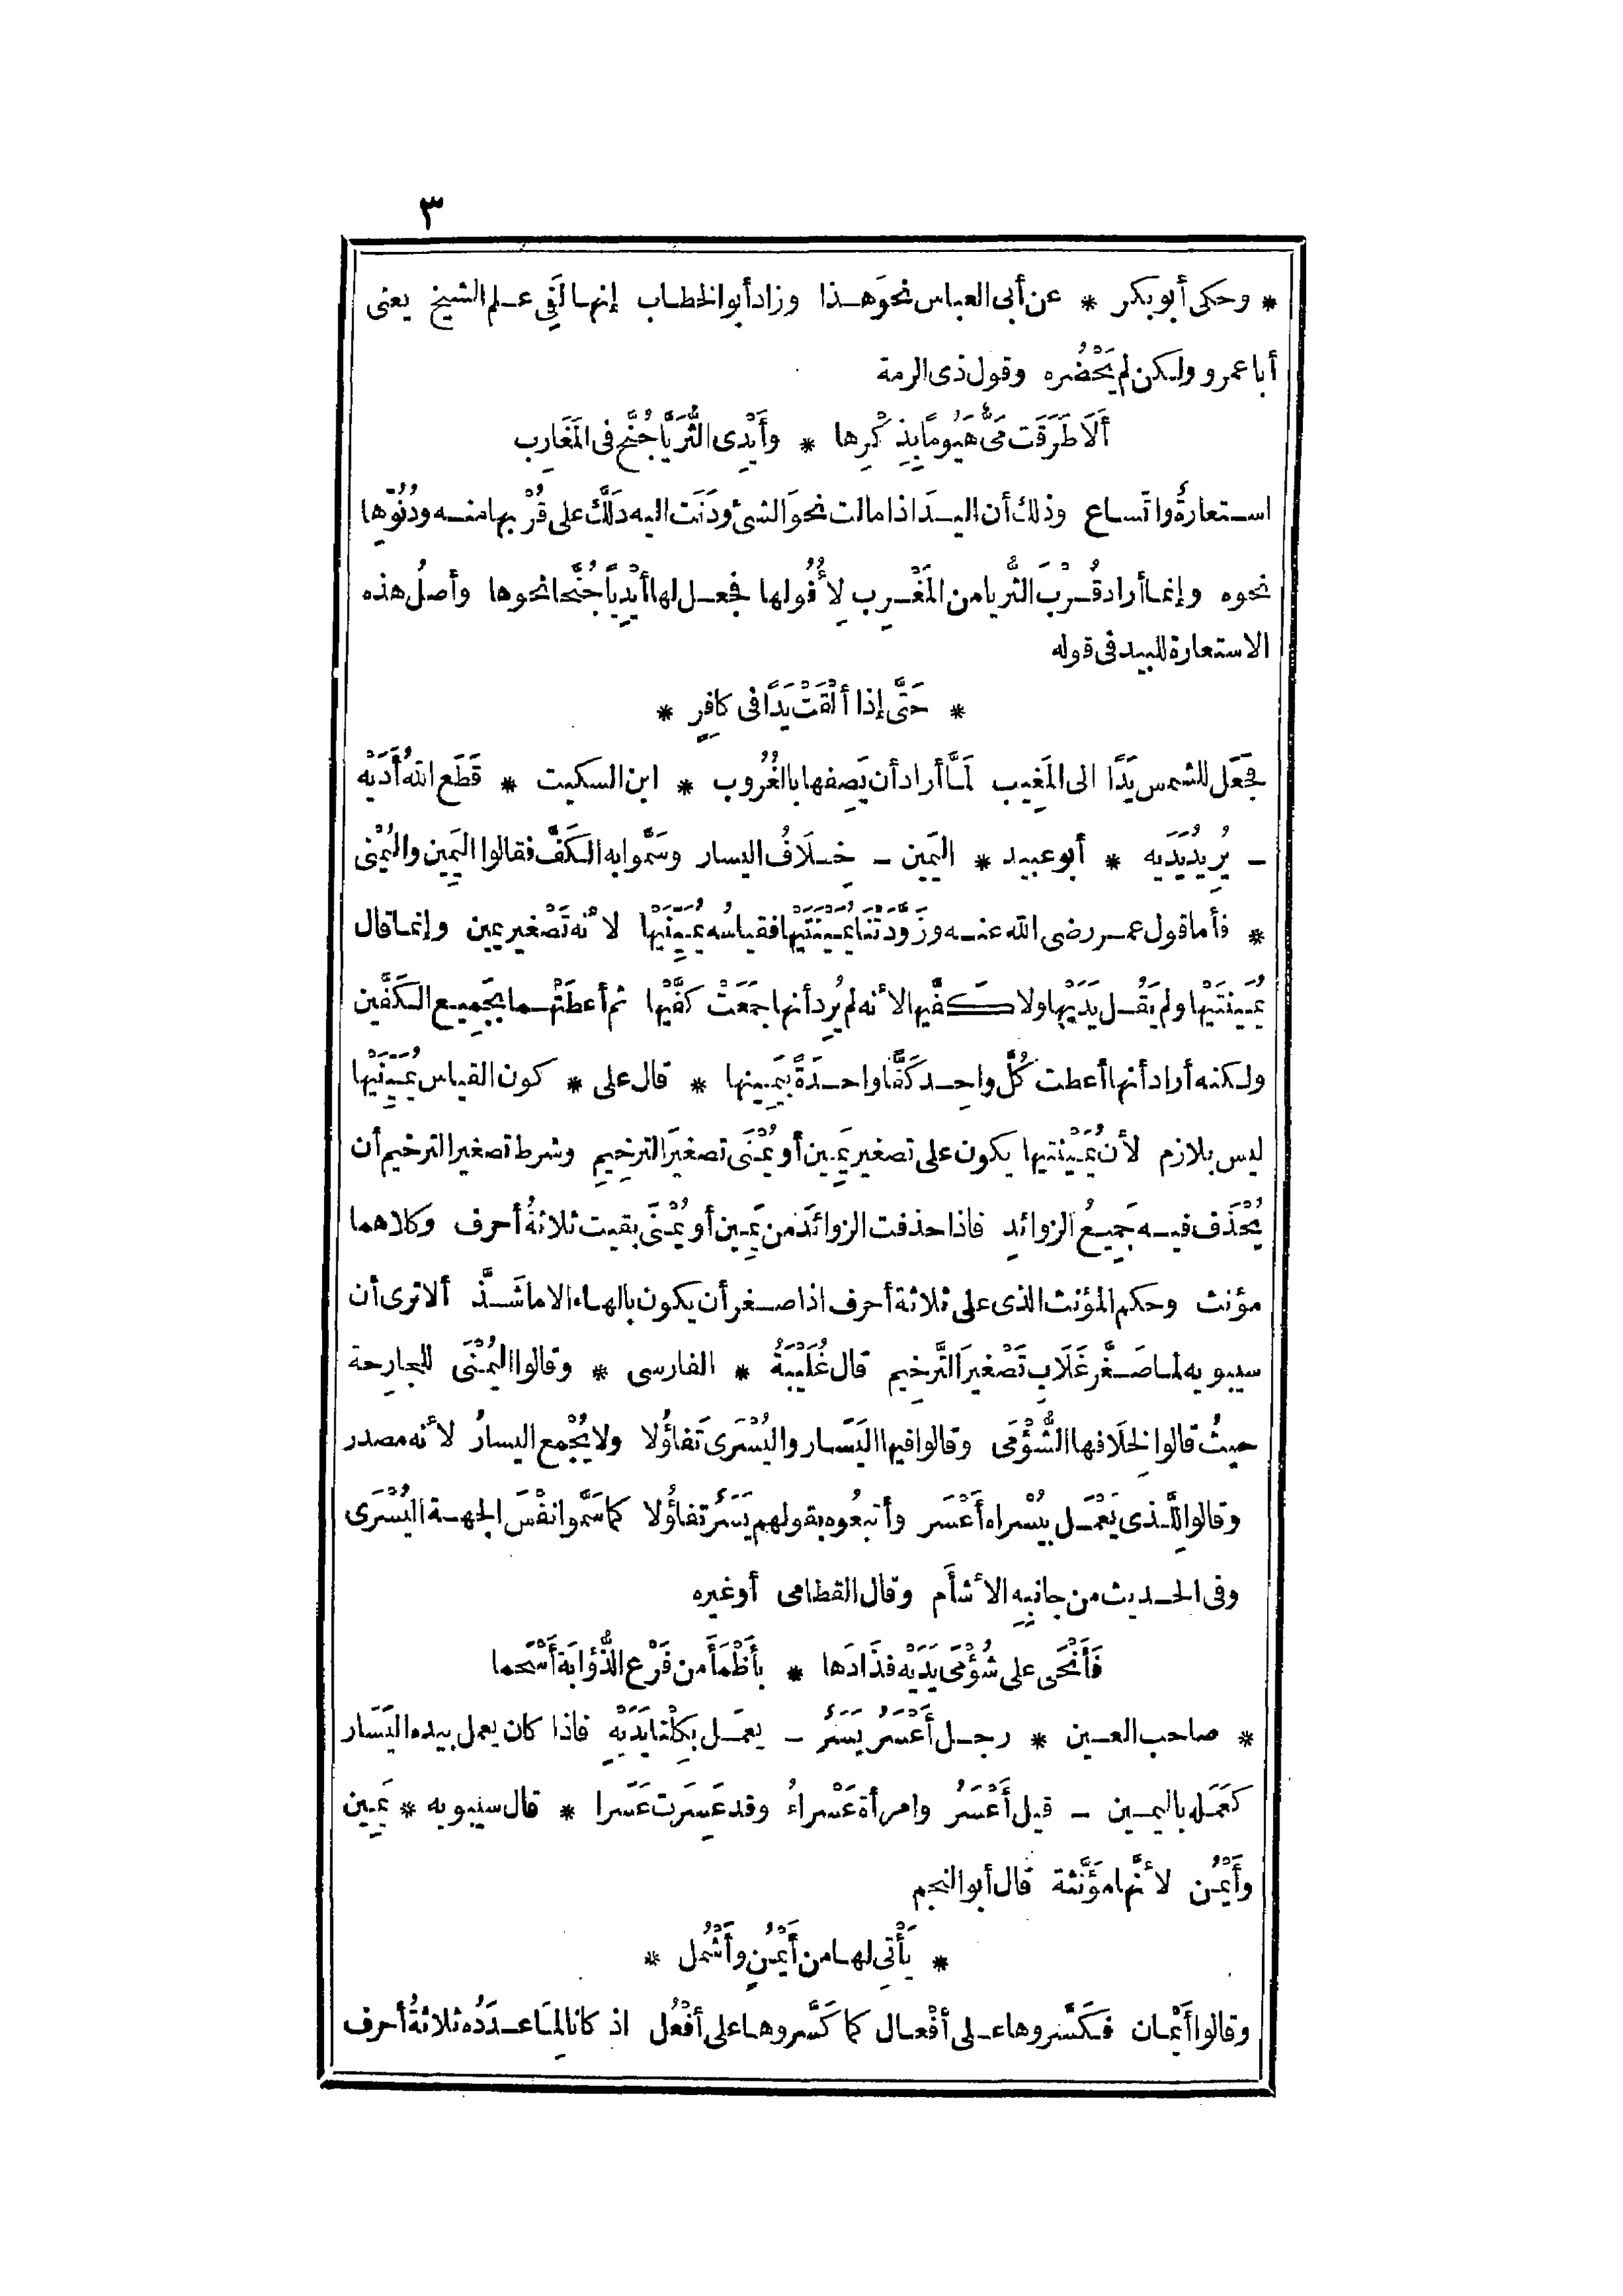 ٣
* وحكى أبو بكر * عن أبى العباس نحوَ هذا وزاد أبو الخطاب إنها لَفِى علم الشيخ يعنى
أبا عمرو ولكن لم يَحْضُره وقول ذى الرمة
أَلَا طَرَقَت مَىٌّ هَيُومًا بِذِكْرِها * وأَيْدِى الثُّرَيَّا جُنَّح فى المَغَارِب
استعارةٌ واتّساع وذلك أن اليدَ اذا مالت نحوَ الشئ ودَنَت اليه دَلَّكَ على قُرْبها منه ودُنُوِّها
نحوه وإنما أراد قُرْبَ الثُّريا من المَغْرِب لِأُفُولها فجعل لها أَيْدِيًا جُنَّحا نحوها وأصلُ هذه
الاستعارة للبيد فى قوله
* حَتَّى إذا أَلْقَتْ يَدًا فى كافِرٍ *
فجَعَل للشمس يَدًا الى المَغِيب لَمَّا أراد أن يَصِفها بالغُرُوب * ابن السكيت * قَطَع اللهُ أَدَيْه
ـ يُرِيدُ يَدَيه * أبو عبيد * اليَمين ـ خِلَافُ اليسار وسَمَّوا به الكَفَّ فقالوا اليَمِين والُيمْنى
* فأما قول عمر رضى الله عنه وزَوَّدَتْنا يُمَيْنَتَيْها فقياسُه يُمَيِّنَيْها لأنه تَصْغير يمين وإنما قال
يُمَينتَيْها ولم يَقُل يَدَيْها ولا كَفَّيها لأنه لم يُرِد أنها جَمَعَتْ كفَّيْها ثم أعطَتْهما بجَمِيع الكَفَّين
ولكنه أراد أنها أعطت كُلَّ واحِد كَفًّا واحدَةً بيَمِينها * قال على * كون القياس يُمَيِّنَيْها
ليس بلازم لأن يُمَيْنتيها يكون على تصغير يَمِين أو يُمْنَى تصغيرَ الترخِيمِ وشرط تصغير الترخيم أن
يُحْذَف فيه جَمِيعُ الزوائدِ فاذا حذفت الزوائدَ من يَمِين أو يُمْنَى بقيت ثلاثةُ أحرف وكلاهما
مؤنث وحكم المؤنث الذى على ثلاثة أحرف اذا صغر أن يكون بالهاء الا ما شَذَّ ألا ترى أن
سيبويه لما صَغَّر غَلَابِ تَصْغيرَ التَّرخِيم قال غُلَيْبَةُ * الفارسى * وقالوا اليُمْنَى للجارِحة
حيثُ قالوا لِخلَافها الشُّؤْمَى وقالوا فيها اليَسَار واليُسْرَى تَفاؤُلا ولا يُجْمع اليسارُ لأنه مصدر
وقالوا لِلَّذى يَعْمَل بيُسْراه أَعْسَر وأتبعُوه بقولهم يَسَرٌ تفاؤُلا كما سَمَّوا نفْسَ الجهة اليُسْرَى
وفى الحديث من جانِبِهِ الأَشأَم وقال القطامى أو غيره
فَأَنْحَى على شُؤْمَى يَدَيْه فذَادَها * بأَظْمَأَ من فَرْع الذُّؤابَة أَسْحَما
* صاحب العين * رجل أَعْسَرُ يَسَرٌ ـ يعمَل بكِلْتا يَدَيْهِ فاذا كان يعمل بيده اليَسَار
كعَمَله باليمين ـ قيل أَعْسَرُ وامرأة عَسْراءُ وقد عَسِرَت عَسَرا * قال سيبويه * يَمِين
وأَيْمُن لأنَّها مؤَنَّثة قال أبو النجم
* يَأْتِى لها من أَيْمُنٍ وأَشْمُل *
وقالوا أَيْمان فكَسَّروها على أفْعال كما كَسَّروها على أفْعُل اذ كانا لِمَا عدَدُه ثلاثةُ أحرف